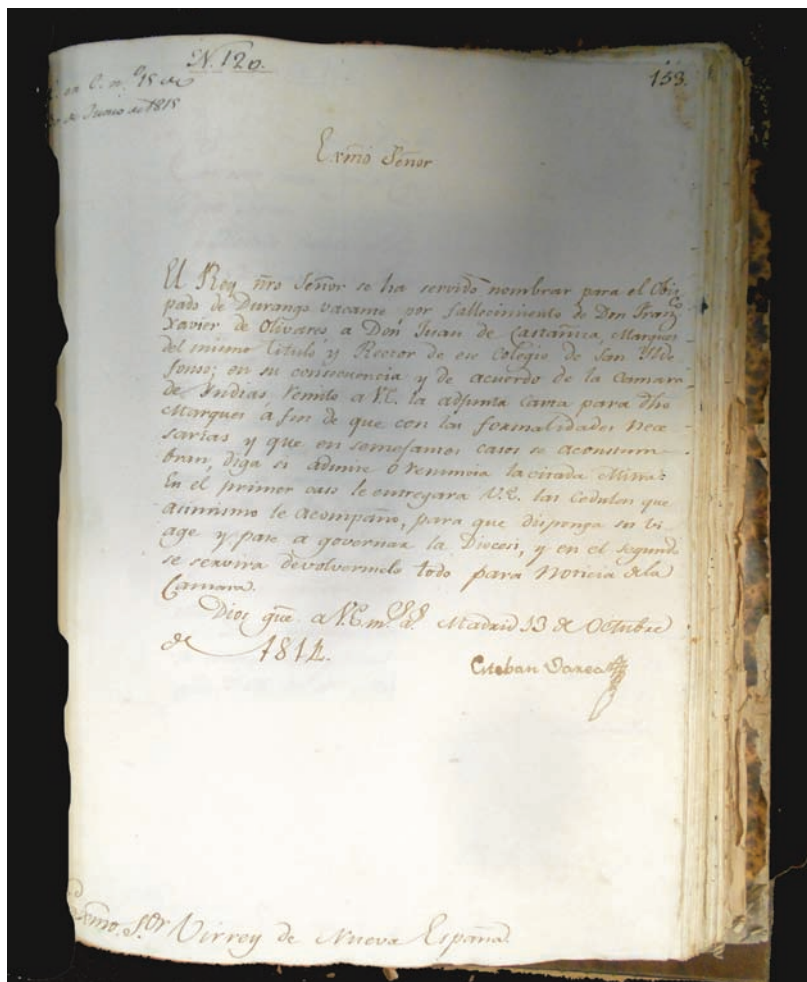 N. 120.
153.
en C. n.º 15 de
de Junio de 1815
Exmô Señor
El Rey nrô Señor se ha servido nombrar para el Obis
pado de Durango vacante por fallecimiento de Don Franco
Xavier de Olivares, a Don Juan de Castañiza, Marques
del mismo titulo, y Rector de ese Colegio de San Ylde
fonso; en su consecuencia y de acuerdo de la Camara
de Indias remito a V.E. la adjunta Carta para dhô
Marques a fin de que con las formalidades nece
sarias y que en semejantes casos se acostum-
bran, diga si admite ó renuncia la citada Mitra:
En el primer caso le entregara V.E. las Cedulas que
asimismo le acompaño, para que disponga su vi
age y pase a governar la Diocesi, y en el segundo
se servira devolvermelo todo para noticia de la
Camara.
Dios gue. a V.E. ms. as. Madrid 13 de Octubre
de 1814.
Esteban Varea
Exmo. Sor Virrey de Nueva España.